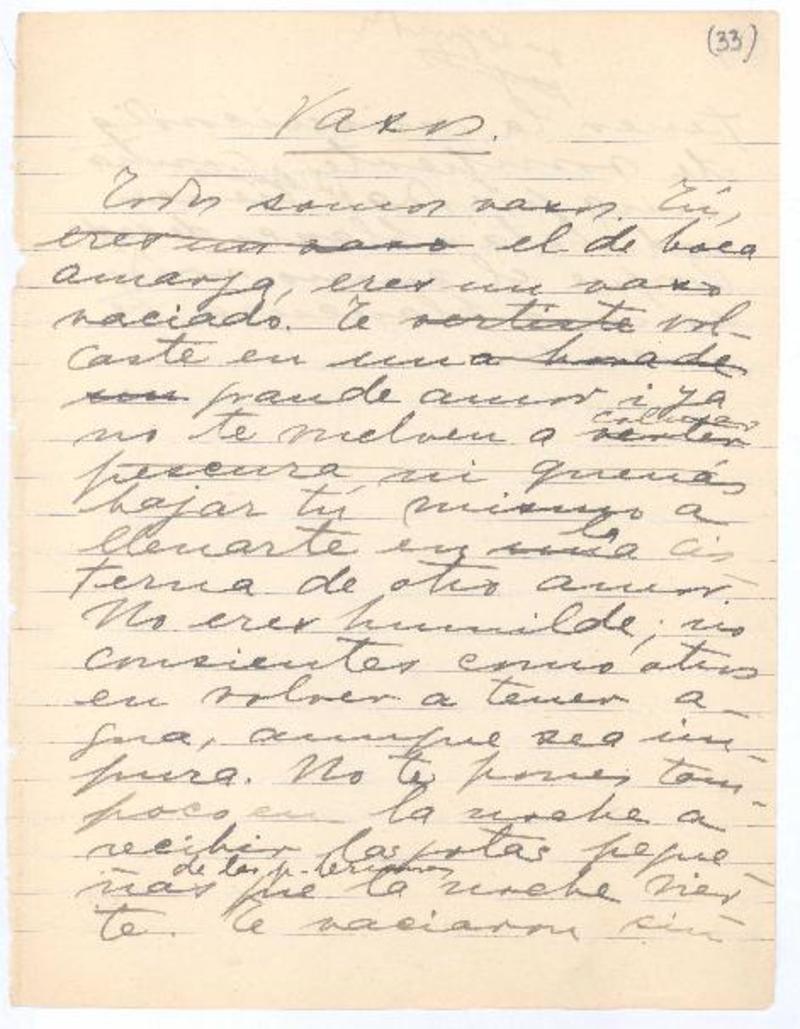 (33)
Vasos.
Todos somos vasos. Tú,
eres un vaso el de boca
amarga, eres un vaso
vaciado. Te vertiste vol-
caste en una hora de
un grande amor i ya
no te vuelven a verter colmar
ni querrás
bajar tú mismo a
llenarte en una la cis
terna de otro amor.
No eres humilde; no
consientes como otros
en volver a tener a-
gua, aunque sea im-
pura. No te pones tam-
poco en la noche a
recibir las gotas peque-
ñas que la noche vier-
de las
te. Te vaciaron sin